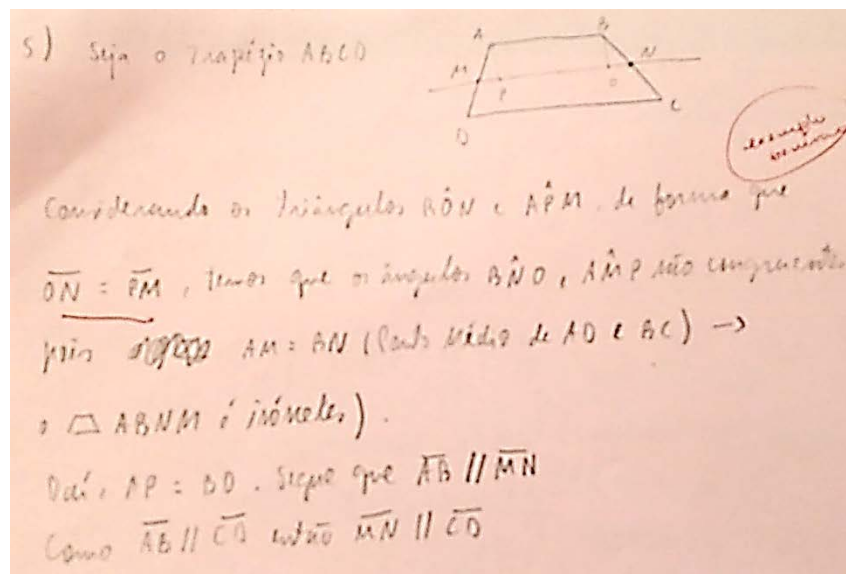 5) Seja o trapézio ABCD
A B M N P O D C
exemplo
Considerando os triângulos BÔN e AP̂M de forma que
ON = PM, temos que os ângulos BN̂O, AM̂P são congruentes
pois AM = BN (Ponto Médio de AD e BC) →
o ⏢ ABNM é isósceles).
Daí, AP = BO. Segue que AB // MN
Como AB // CD então MN // CD